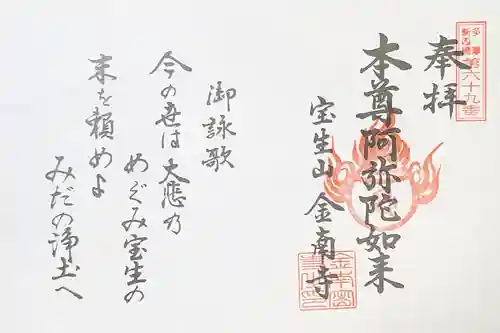 多摩
新四国
第六十九番
奉拝
本尊阿弥陀如来
宝生山 金南寺
御詠歌
今の世は大悲乃
めぐみ宝生の
末を頼めよ
みだの浄土へ